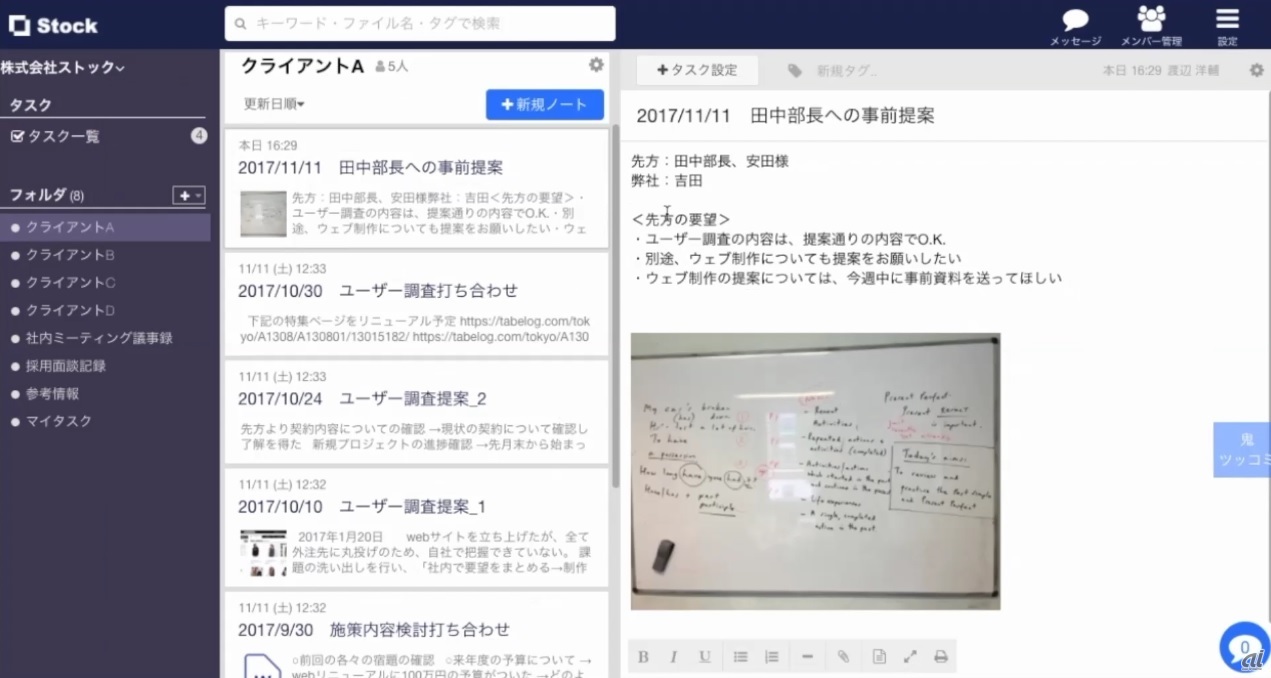 Stock
キーワード・ファイル名・タグで検索
メッセージ
メンバー管理
設定
株式会社ストック
タスク
タスク一覧
4
フォルダ (8)
クライアントA
クライアントB
クライアントC
クライアントD
社内ミーティング議事録
採用面談記録
参考情報
マイタスク
クライアントA 5人
更新日順
新規ノート
本日 16:29
2017/11/11 田中部長への事前提案
先方：田中部長、安田様弊社：吉田＜先方の要望＞・
ユーザー調査の内容は、提案通りの内容でO.K.・別
途、ウェブ制作についても提案をお願いしたい・ウェ
11/11 (土) 12:33
2017/10/30 ユーザー調査打ち合わせ
下記の特集ページをリニューアル予定 https://tabelog.com/tok
yo/A1308/A130801/13015182/ https://tabelog.com/tokyo/A130
11/11 (土) 12:33
2017/10/24 ユーザー調査提案_2
先方より契約内容についての確認 →現状の契約について確認し
了解を得た 新規プロジェクトの進捗確認 →先月末から始まっ
11/11 (土) 12:32
2017/10/10 ユーザー調査提案_1
2017年1月20日 webサイトを立ち上げたが、全て
外注先に丸投げのため、自社で把握できていない。 課
題の洗い出しを行い、「社内で要望をまとめる→制作
11/11 (土) 12:32
2017/9/30 施策内容検討打ち合わせ
○前回の各々の宿題の確認 ○来年度の予算について →
webリニューアルに100万円の予算がついた →どのよ
タスク設定
新規タグ..
本日 16:29 渡辺 洋輔
2017/11/11 田中部長への事前提案
先方：田中部長、安田様
弊社：吉田
＜先方の要望＞
・ユーザー調査の内容は、提案通りの内容でO.K.
・別途、ウェブ制作についても提案をお願いしたい
・ウェブ制作の提案については、今週中に事前資料を送ってほしい
My car's broken
To have
a possession
How long have you had it
Have/has + past
participle
- Recent
Activities
- Repeated actions +
activities (completed)
- Activities/actions
which started in the past
and continue in the present
- Life experiences
- A single, completed
action in the past
Present Perfect
Present RESULT
is important.
Today's aims:
To review and
practise the Past Simple
and Present Perfect
鬼
ツッコミ
B I U
0
ai